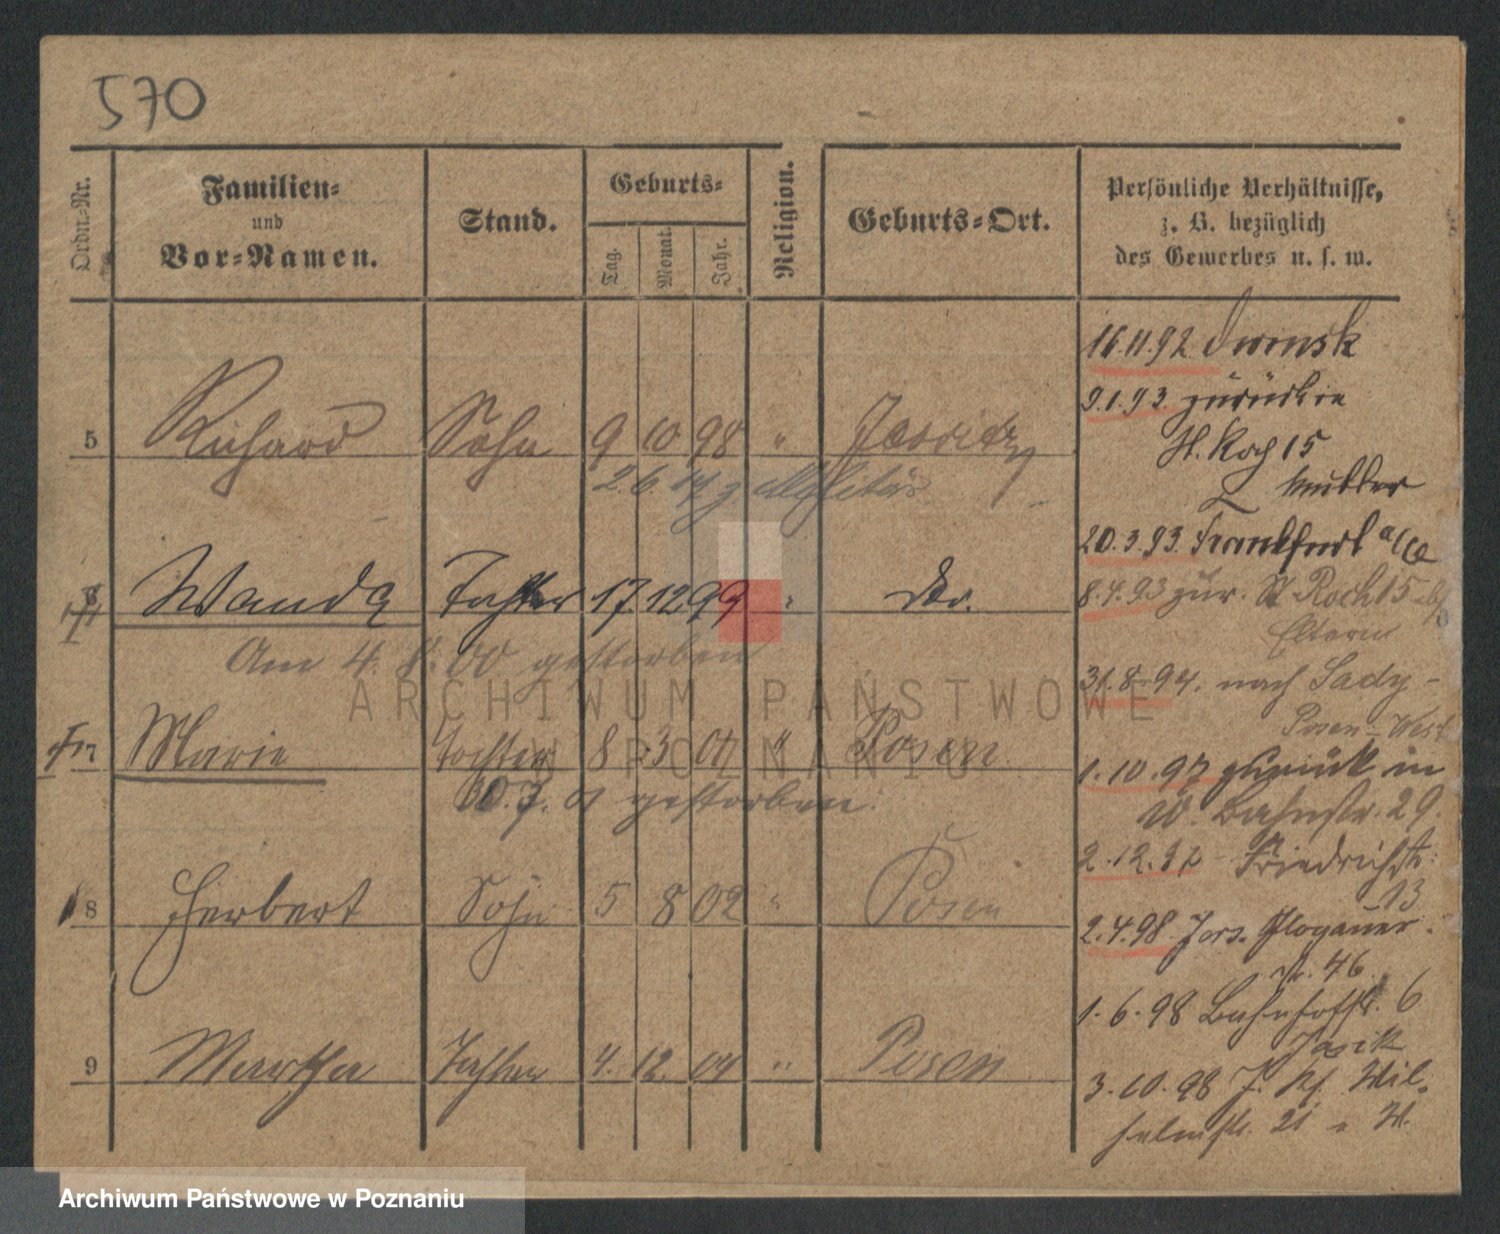 570
Ordn.-Nr.
Familien-
und
Vor-Namen.
Stand.
Geburts-
Tag.
Monat.
Jahr.
Religion.
Geburts-Ort.
Persönliche Verhältnisse,
z. B. bezüglich
des Gewerbes u. s. w.
5 Richard Sohn 9 10 98 "
2.6.
Wanda Tochter 17 12 99 " Do.
Am 4. 8. 00 gestorben
Marie Tochter 8 3 01 " Posen
10.7.01 gestorben.
8 Herbert Sohn 5 8 02 " Posen
9 Martha Tochter 4. 12. 04 " Posen
16.11.92 Dwinsk
9.1.93. zurück in
St. Roch 15
Mutter
20.3.93. Frankfurt a/O
8.4.93 zur. St. Roch 15 b/
Eltern
31.8.94. nach Sady-
Posen-West
1.10.97 zurück in
W. Bahnstr. 29.
2.12.97 Friedrichstr.
13
2.4.98 Jers. Glogauer-
str. 46
1.6.98 Bahnhofstr. 6
3.10.98 J. Wil-
helmstr. 21
ARCHIWUM PAŃSTWOWE
W POZNANIU
Archiwum Państwowe w Poznaniu